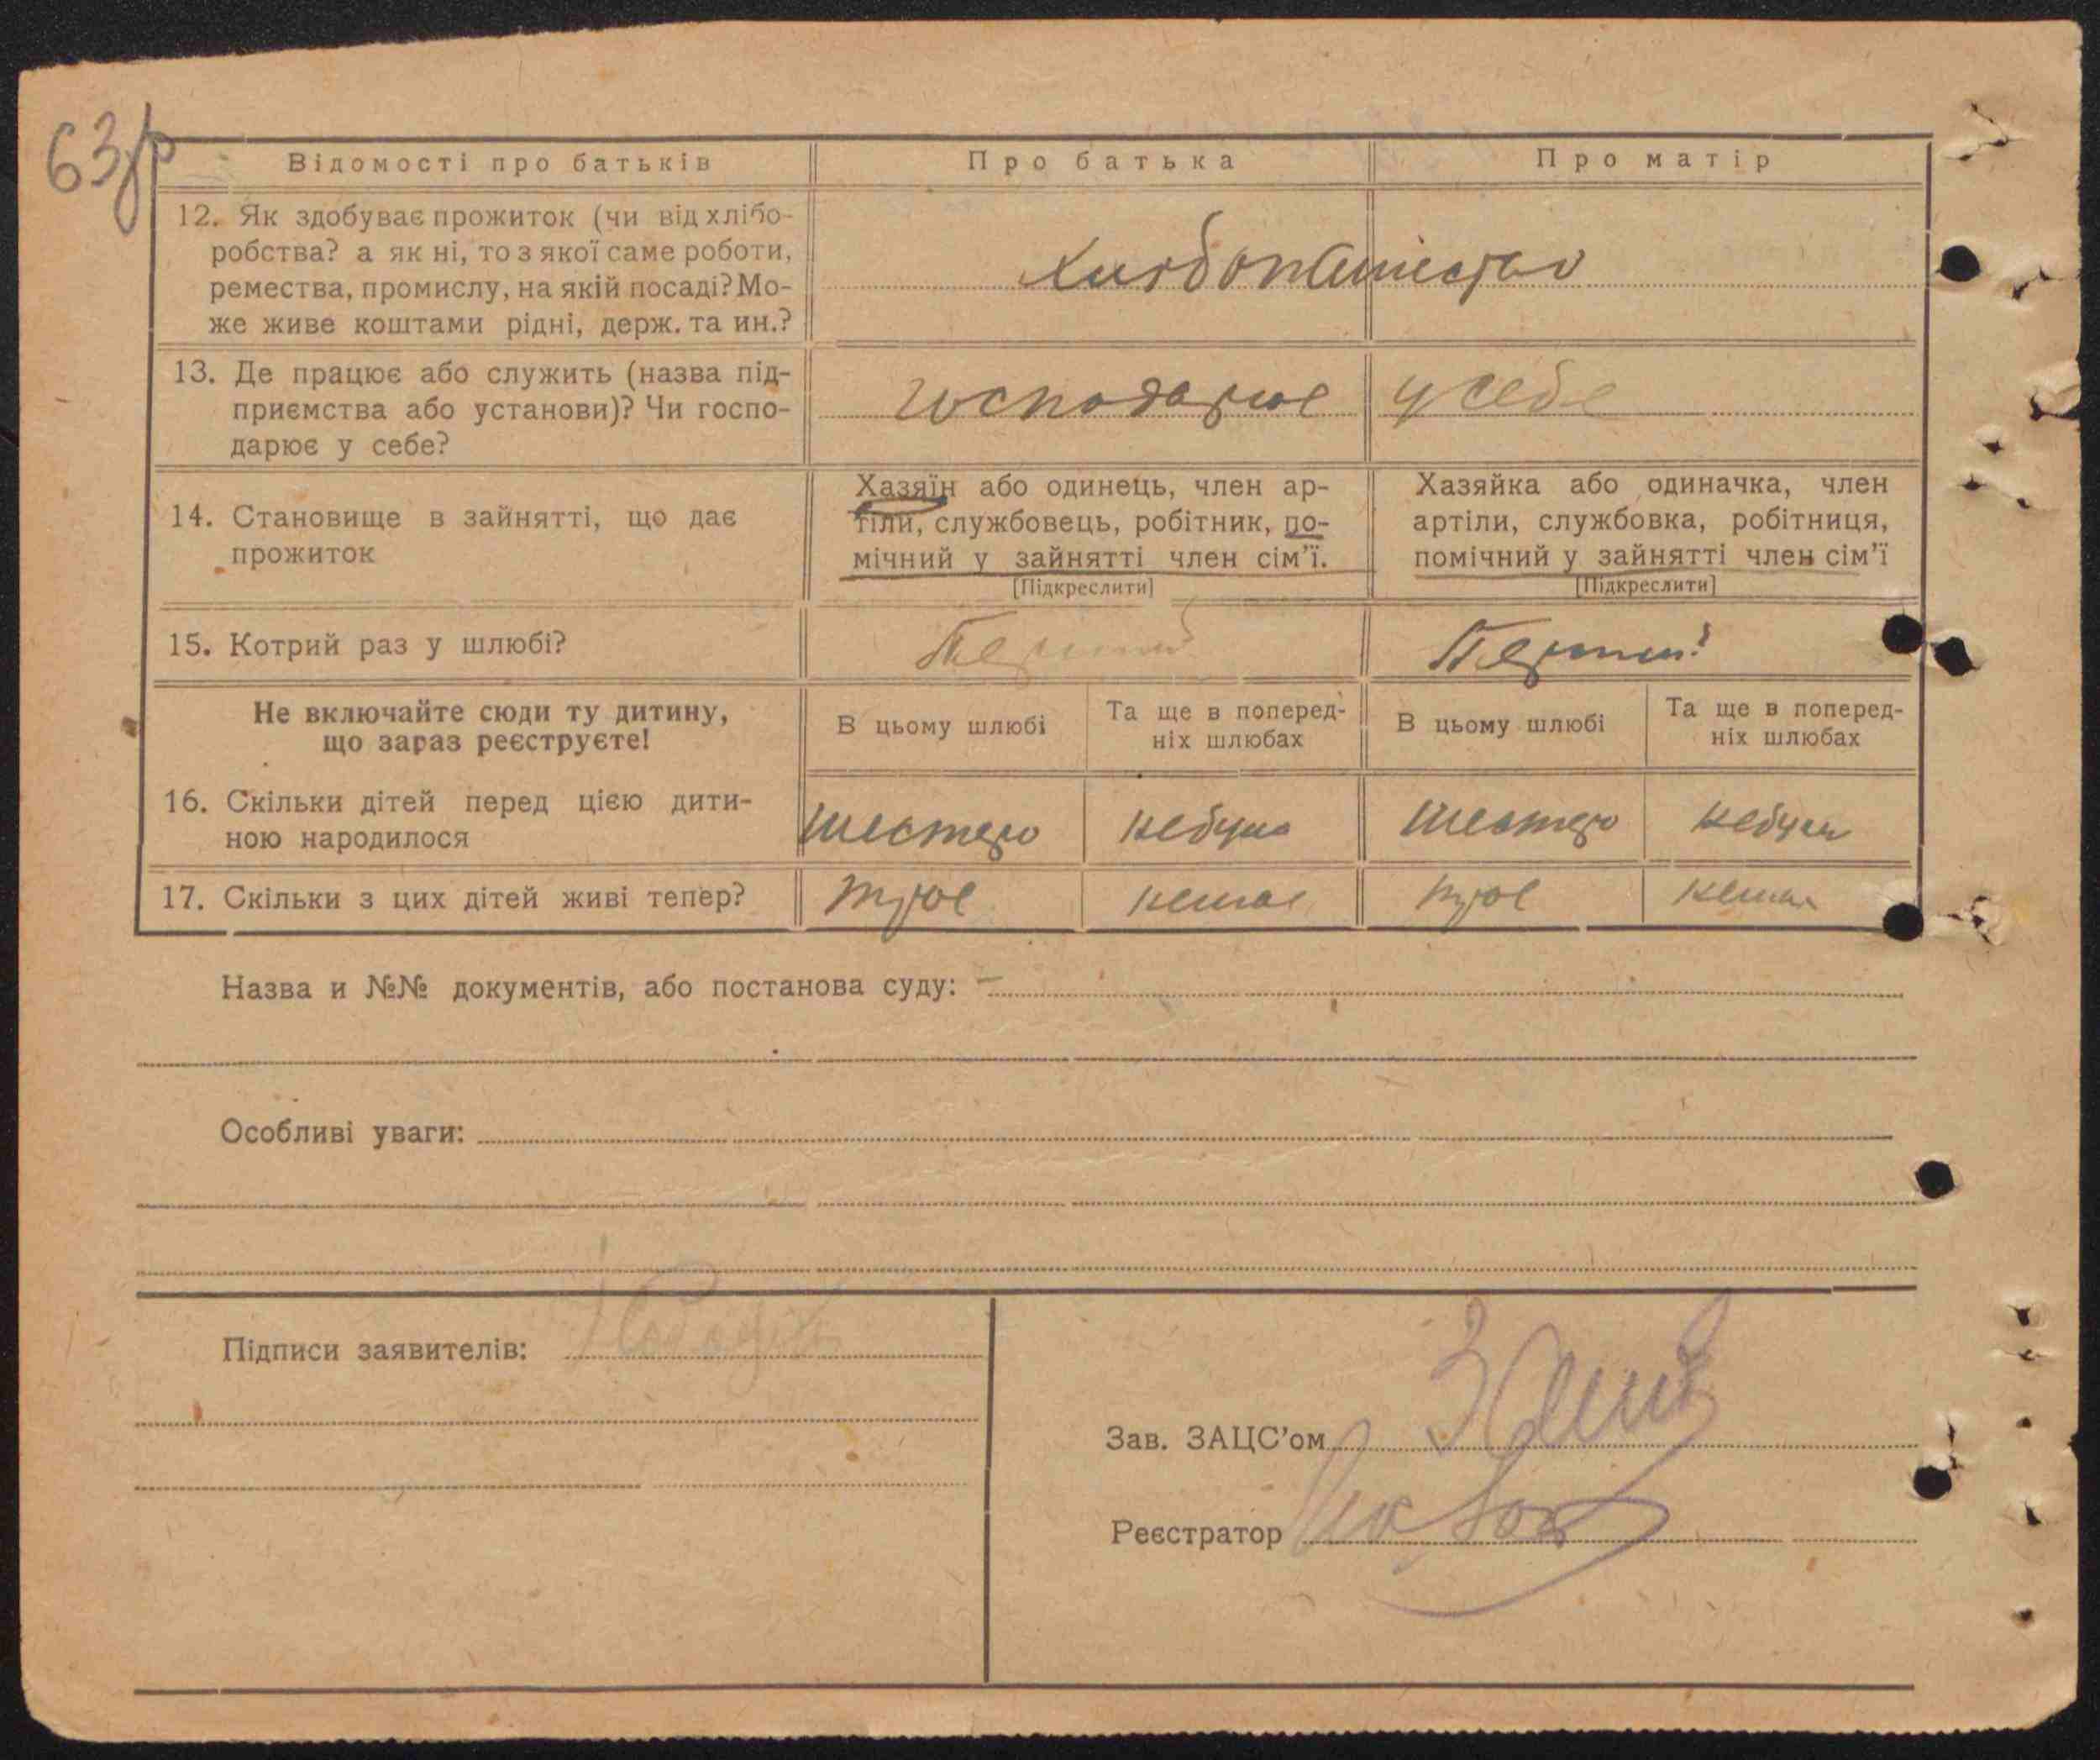 63зр
Відомості про батьків
Про батька
Про матір
12. Як здобуває прожиток (чи від хлібо-
робства? а як ні, то з якої саме роботи,
ремества, промислу, на якій посаді? Мо-
же живе коштами рідні, держ. та ин.?
Хлібопашество
13. Де працює або служить (назва під-
приємства або установи)? Чи госпо-
дарює у себе?
господарює
у себе
14. Становище в зайнятті, що дає
прожиток
Хазяїн або одинець, член ар-
тіли, службовець, робітник, по-
мічний у зайнятті член сім'ї.
[Підкреслити]
Хазяйка або одиначка, член
артіли, службовка, робітниця,
помічний у зайнятті член сім'ї
[Підкреслити]
15. Котрий раз у шлюбі?
Перший
Перший
Не включайте сюди ту дитину,
що зараз реєструєте!
В цьому шлюбі
Та ще в поперед-
ніх шлюбах
В цьому шлюбі
Та ще в поперед-
ніх шлюбах
16. Скільки дітей перед цією дити-
ною народилося
шестеро
небуло
шестеро
небуло
17. Скільки з цих дітей живі тепер?
троє
немає
троє
немає
Назва и №№ документів, або постанова суду: –
Особливі уваги:
Підписи заявителів:
Зав. ЗАЦС'ом
Реєстратор